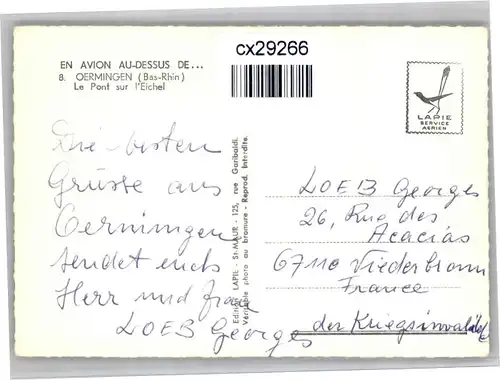 EN AVION AU-DESSUS DE...
8. OERMINGEN (Bas-Rhin)
Le Pont sur l'Eichel
cx29266
LAPIE
SERVICE
AERIEN
Die besten
Grüsse aus
Oermingen
sendet euch
Herr und Frau
LOEB Georges
Edition LAPIE - St-MAUR - 125, rue Garibaldi.
Véritable photo au bromure - Reprod. Interdite.
LOEB Georges
26, Rue des
Acacias
67110 Niederbronn
France
der Kriegsinvalide